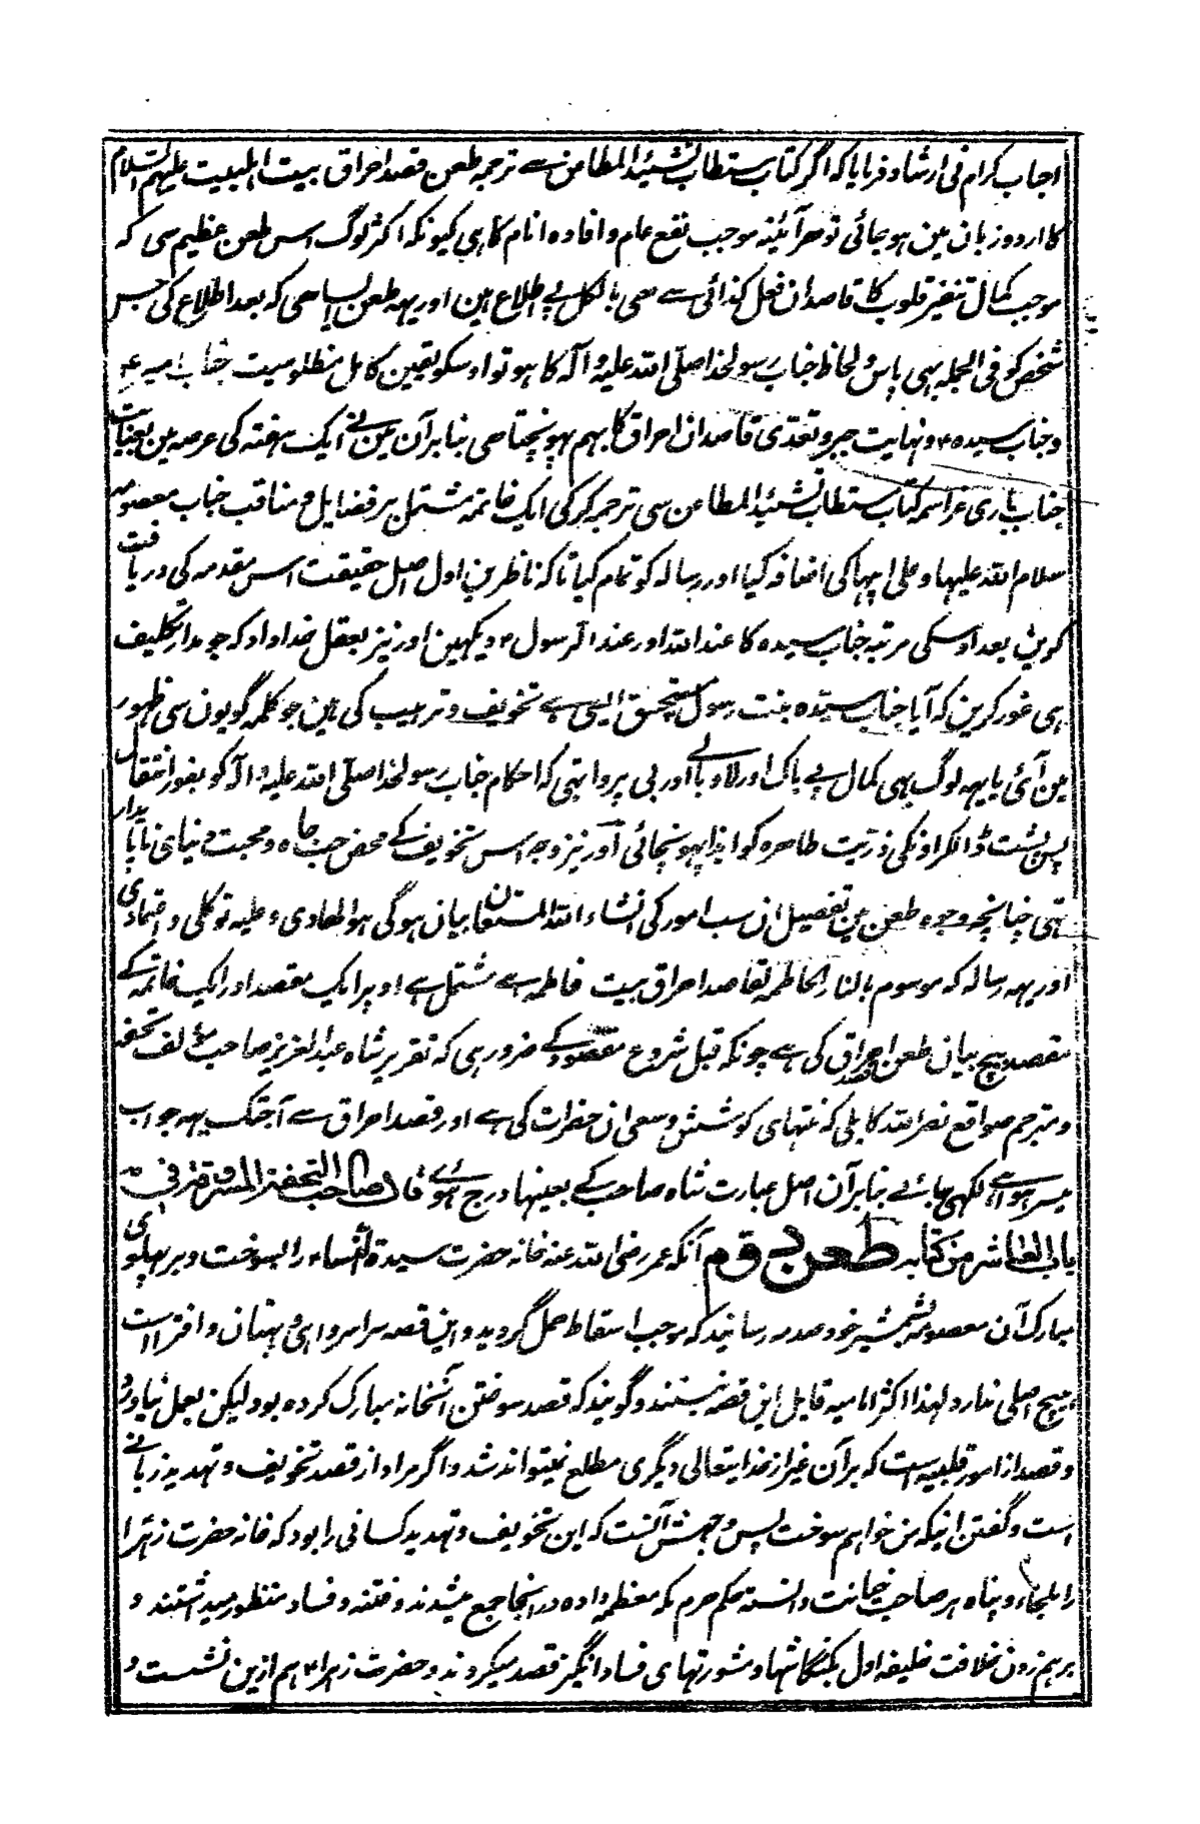 احباب کرام نی ارشاد فرمایا کہ اگر کتاب مستطاب تشئید المطاعن سے ترجمہ طعن قصد احراق بیت اہلبیت علیہم السلام
کا اردو زبان مین ہو جائی تو ہر آئینہ موجب نفع عام و افادہ انام کا ہی کیونکہ اکثر لوگ اس طعن عظیم سی کہ
موجب کمال تنفیر قلوب کا قاصدان فعل کذائی سے ہی بالکل بے اطلاع ہین اور یہہ طعن ایسا ہی کہ بعد اطلاع کی جس
شخص کو فی الجملہ بہی پاس و لحاظ جناب رسولخدا صلی اللہ علیہ و آلہ کا ہو تو اوسکو یقین کامل مظلومیت جناب امیر ع
و جناب سیدہ ع و نہایت جبر و تعدّی قاصدان احراق کا بہم پہونچتا ہی بنابر آن مین نے ایک ہفتہ کی عرصہ مین بعنایت
جناب باری عز اسمہ کتاب مستطاب تشئید المطاعن سی ترجمہ کر کی ایک خاتمہ مشتمل بر فضایل و مناقب جناب معصومہ
سلام اللہ علیہا و علی ابیہا کی اضافہ کیا اور رسالہ کو تمام کیا تاکہ ناظرین اول اصل حقیقت اس مقدمہ کی دریافت
کرین بعد اوسکی مرتبہ جناب سیدہ کا عند اللہ اور عند الرسول ص دیکہین اور نیز بعقل خداداد کہ جو مدار تکلیف
ہی غور کرین کہ آیا جناب سیدہ بنت رسول مستحق ایسی ہے تخویف و ترہیب کی ہین جو کلمہ گویون سی ظہور
مین آئی یا یہہ لوگ بہی کمال بے باک اور لاوبالے اور بی پروا تہی کہ احکام جناب رسولخدا صلی اللہ علیہ و آلہ کو بفور انتقال
پس پشت ڈالکر اونکی ذریّت طاہرہ کو ایذا پہونچائی اور نیز وجہ اس تخویف کے محض حب جاہ و محبت دنیای ناپایدار
تہی چنانچہ وجوہ طعن مین تفصیل ان سب امور کی انشاء اللہ المستعان بیان ہوگی ہو الہادی و علیہ توکلی و اعتمادی
اور یہہ رسالہ کہ موسوم بالنار الحاطمہ لقاصد احراق بیت فاطمہ ہے مشتمل ہے اوپر ایک مقصد اور ایک خاتمہ کے
مقصد بیچ بیان طعن قصد احراق کی ہے چونکہ قبل شروع مقصود کے ضرور ہی کہ تقریر شاہ عبد العزیز صاحب مؤلف تحفہ
و مترجم صواقع نصر اللہ کابلی کہ منتہای کوشش و سعی ان حضرات کی ہے اور قصد احراق سے آجتک یہہ جواب
میسر ہوا ہے لکہی جائے بنابر آن اصل عبارت شاہ صاحب کے بعینہا درج ہوئے قال صاحب التحفۃ المسروقۃ فی
باب العاشر من کتابہ طعن دوم آنکہ عمر رضی اللہ عنہ خانہ حضرت سیدۃ النساء را بسوخت و بر پہلوی
مبارک آن معصومہ بشمشیر خود صدمہ رسانید کہ موجب اسقاط حمل گردید و این قصہ سراسر واہی و بہتان و افترا است
ہیچ اصلی ندارد لہذا اکثر امامیہ قایل این قصہ نیستند و گویند کہ قصد سوختن آنخانہ مبارک کردہ بود لیکن بعمل نیاورد
و قصد از امور قلبیہ است کہ بر آن غیر از خدایتعالی دیگری مطلع نمیتواند شد و اگر مراد از قصد تخویف و تہدید زبانے
است و گفتن اینکہ من خواہم سوخت پس وجہش آنست کہ این تخویف و تہدید کسانی را بود کہ خانہ حضرت زہرا
را ملجاء و پناہ ہر صاحب خیانت دانستہ حکم حرم مکہ معظمہ دادہ در آنجا جمع میشدند و فتنہ و فساد منظور میداشتند و
برہم زدن خلافت خلیفہ اول بکنگاشہا و مشورتہای فساد انگیز قصد میکردند و حضرت زہرا ع ہم ازین نشست و